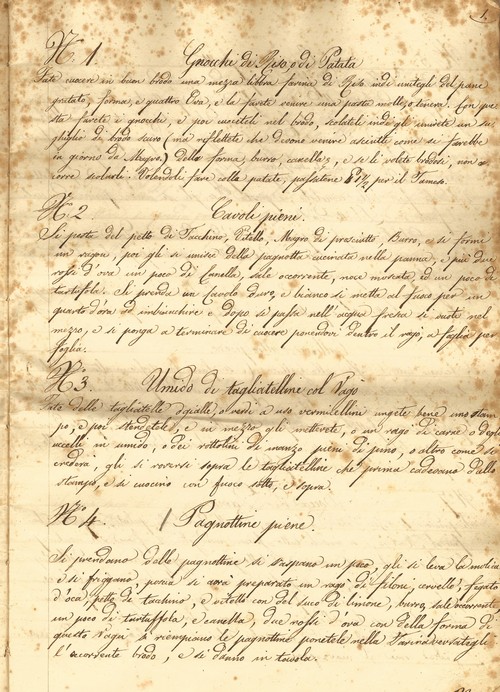 1.
N.° 1. Gnocchi di Riso, o di Patata
Fate cuocere in buon brodo una mezza libbra farina di Riso indi unitegli del pane
gratato, forma, e quattro Ova, e la farete venire una pasta molto tenera. Con que
sta farete i gnocchi, e poi cuoceteli nel brodo, scolateli indi gli unirete un
di brodo scuro (ma riflettete che devono venire asciutti come si farebbe
in giorno da Magro) della forma, burro, canella, e se li volete brodosi, non oc
corre scolarli. Volendoli fare colla patate, passatene per il Tamiso.
N.° 2. Cavoli pieni.
Si pesta del petto di Tacchino, Vitello, Magro di prosciutto, Burro, e si formi
un ragou, poi gli si unisce della pagnotta cucinata nella panna, e più due
rossi d'ova un poco di Canella, sale occorrente, noce moscata, ed un poco di
tartuffola. Si prenda un Cavolo duro, e bianco si metta al fuoco per un
quarto d'ora ad imbianchire e dopo si passa nell'acqua fresca si vuota nel
mezzo, e si ponga a terminare di cuocere ponendovi dentro il ragò, a foglia per
foglia.
N.° 3. Umido di tagliatelline col Ragò
Fate delle tagliatelle gialle, o verdi a uso vermicellini ungete bene uno stam
po, e poi stendetele, e in mezzo gli metterete, o un ragò di carne o degli
uccelli in umido, o dei rottolini di manzo pieni di pieno, o altro come si
crederà, gli si roversi sopra le tagliatelline che prima cadevano dallo
stampo, e si cuocino con fuoco sotto, e sopra.
N.° 4. Pagnottine piene.
Si prendano delle pagnottine si raspano un poco, gli si leva la molica
e si friggano, poscia si avrà preparato un ragò di filoni, cervello, fegato
d'oca, petto di tacchino, e cotetto con del suco di limone, burro, sale occorrente
un poco di tartuffola, e canella, due rossi d'ova con della forma di
questo Ragù si riempiano le pagnottine ponetele nella Tarina versategli
l'occorrente brodo, e si danno in tavola.